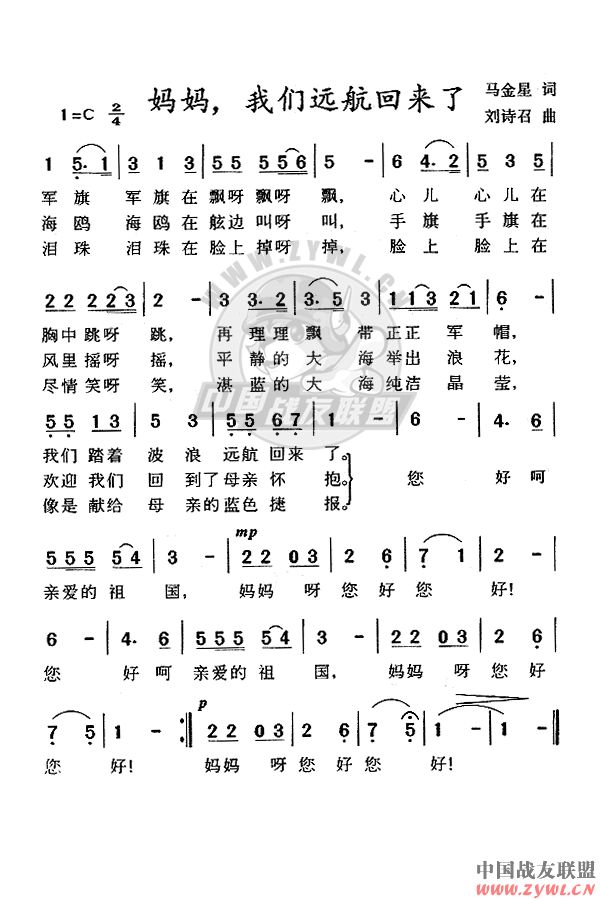 妈妈，我们远航回来了
1=C 2/4
马金星 词
刘诗召 曲
1 5. 1 | 3 1 3 | 55 556 | 5 - | 6 4. 2 | 5 3 5 |
军旗 军旗在飘呀飘呀飘，心儿 心儿在
海鸥 海鸥在舷边叫呀叫，手旗 手旗在
泪珠 泪珠在脸上掉呀掉，脸上 脸上在
22 223 | 2 - | 3 3. 2 | 3. 5 3 | 113 221 | 6 - |
胸中跳呀跳，再理理飘带正正军帽，
风里摇呀摇，平静的大海举出浪花，
尽情笑呀笑，湛蓝的大海纯洁晶莹，
55 13 | 5 3 | 55 67 | 1 - | 6 - | 4. 6 |
我们踏着波浪远航回来了。
欢迎我们回到了母亲怀抱。 您 好呵
像是献给母亲的蓝色捷报。
mp
555 54 | 3 - | 22 03 | 2 6 | 7 1 | 2 - |
亲爱的祖国，妈妈呀您好您好！
6 - | 4. 6 | 555 54 | 3 - | 22 03 | 2 6 |
您 好呵亲爱的祖国，妈妈呀您好
p
7 5 | 1 - :| 22 03 | 2 6 | 7 5 | 1 - | 1 - |
您 好！ 妈妈呀您好您 好！
WWW.ZYWL.CN
中国战友联盟
中国战友联盟
WWW.ZYWL.CN